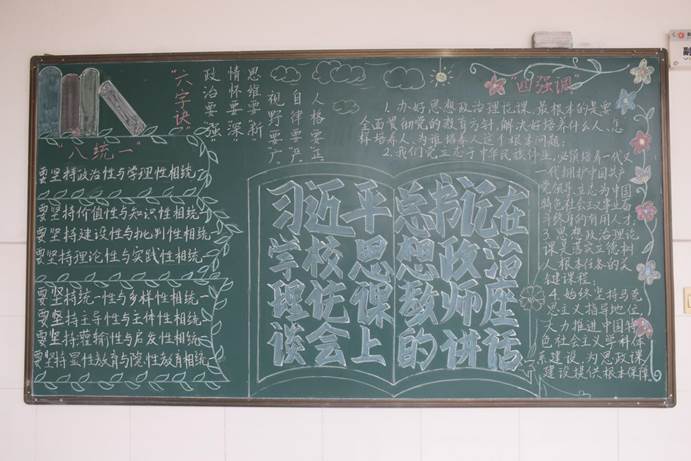 "八统一"
要坚持政治性与学理性相统一
要坚持价值性与知识性相统一
要坚持建设性与批判性相统一
要坚持理论性与实践性相统一
要坚持统一性与多样性相统一
要坚持主导性与主体性相统一
要坚持灌输性与启发性相统一
要坚持显性教育与隐性教育相统一
"六字诀"
政治要"强"
情怀要"深"
思维要"新"
视野要"广"
自律要"严"
人格要"正"
习近平总书记在
学校思想政治
理论课教师座
谈会上的讲话
"四强调"
1.办好思想政治理论课,最根本的是要
全面贯彻党的教育方针,解决好培养什么人、怎
样培养人、为谁培养人这个根本问题;
2.我们党立志于中华民族千秋
必须培养一代又
一代拥护中国共产
党领导、立志为中国
特色社会主义事业奋
斗终身的有用人才
3.思想政治理论
课是落实立德树
人根本任务的关
键课程;
4.始终坚持马克
思主义指导地位,
大力推进中国特
色社会主义学科体
系建设,为思政课
建设提供根本保障